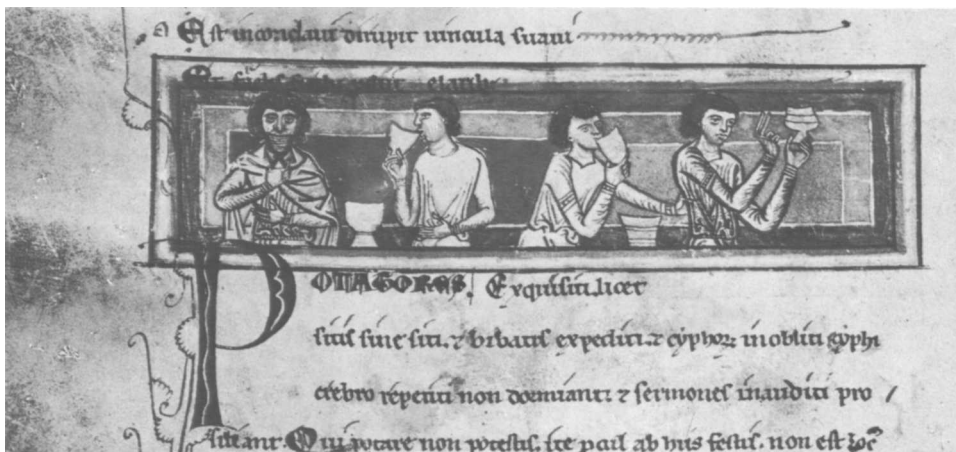 Est in conclavi dirupit vincula suavi
POTATORES. Exquisiti. licet
sitis sine siti. ⁊ bibatis expediti. ⁊ cyphoꝝ inobliti cyphi
crebro repetiti non dormiant: ⁊ sermones inauditi pro
siliant. Qui potare non potestis. ite pcul ab hiis festis. non est loc